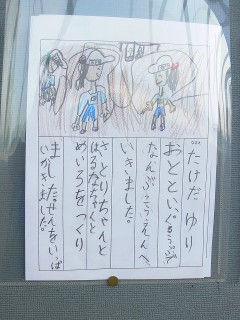 たけだ ゆり
おとといぐるうぷで
なんぶこうえんへ
いきました。
さとりちゃんと
はるなちゃんと
めいろをつくり
ました。せんをいっぱ
いかきました。